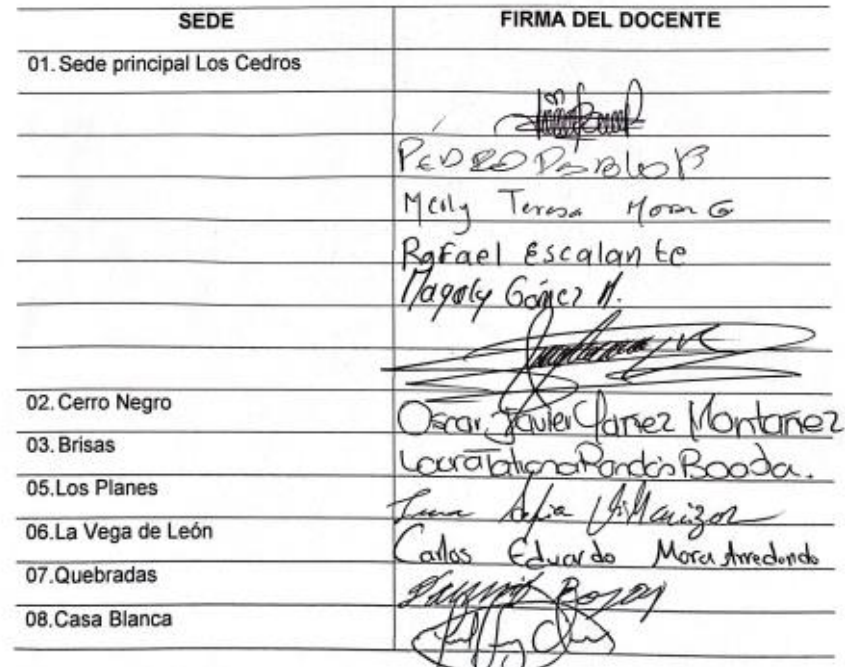 SEDE FIRMA DEL DOCENTE
01. Sede principal Los Cedros
PEDRO PABLO B
Meily Teresa Mora G
Rafael Escalante
Magoly Gómez M.
02. Cerro Negro Oscar Javier Yañez Montañez
03. Brisas Laura Tatiana Rondón
05. Los Planes Sofia Villamizar
06. La Vega de León Carlos Eduardo Mora Arredondo
07. Quebradas
08. Casa Blanca